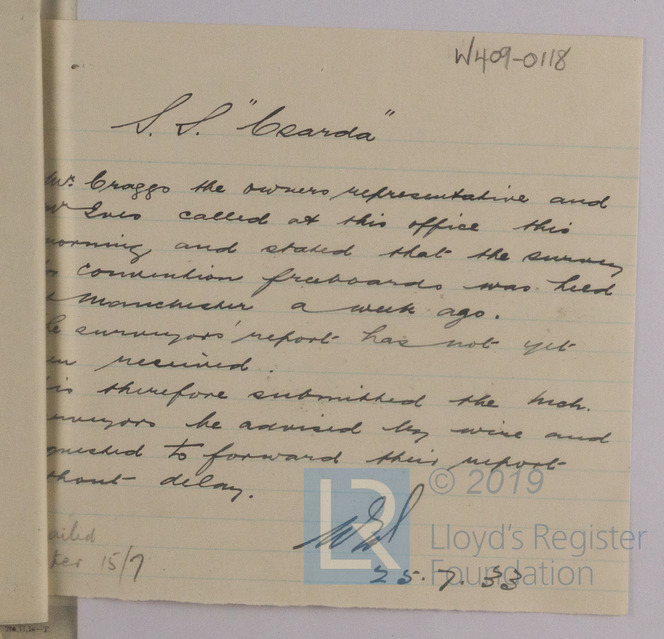 W409-0118
S.S. "Czarda"
Mr. Craggs the owners representative and
Mr Ives called at this office this
morning and stated that the survey
convention freeboards was held
Manchester a week ago.
surveyors' report has not yet
en received.
is therefore submitted the Mch.
urveyors be advised by wire and
quested to forward their report
thout delay.
© 2019
LR
Lloyd's Register
Foundation
25.7.33
ailed
15/7